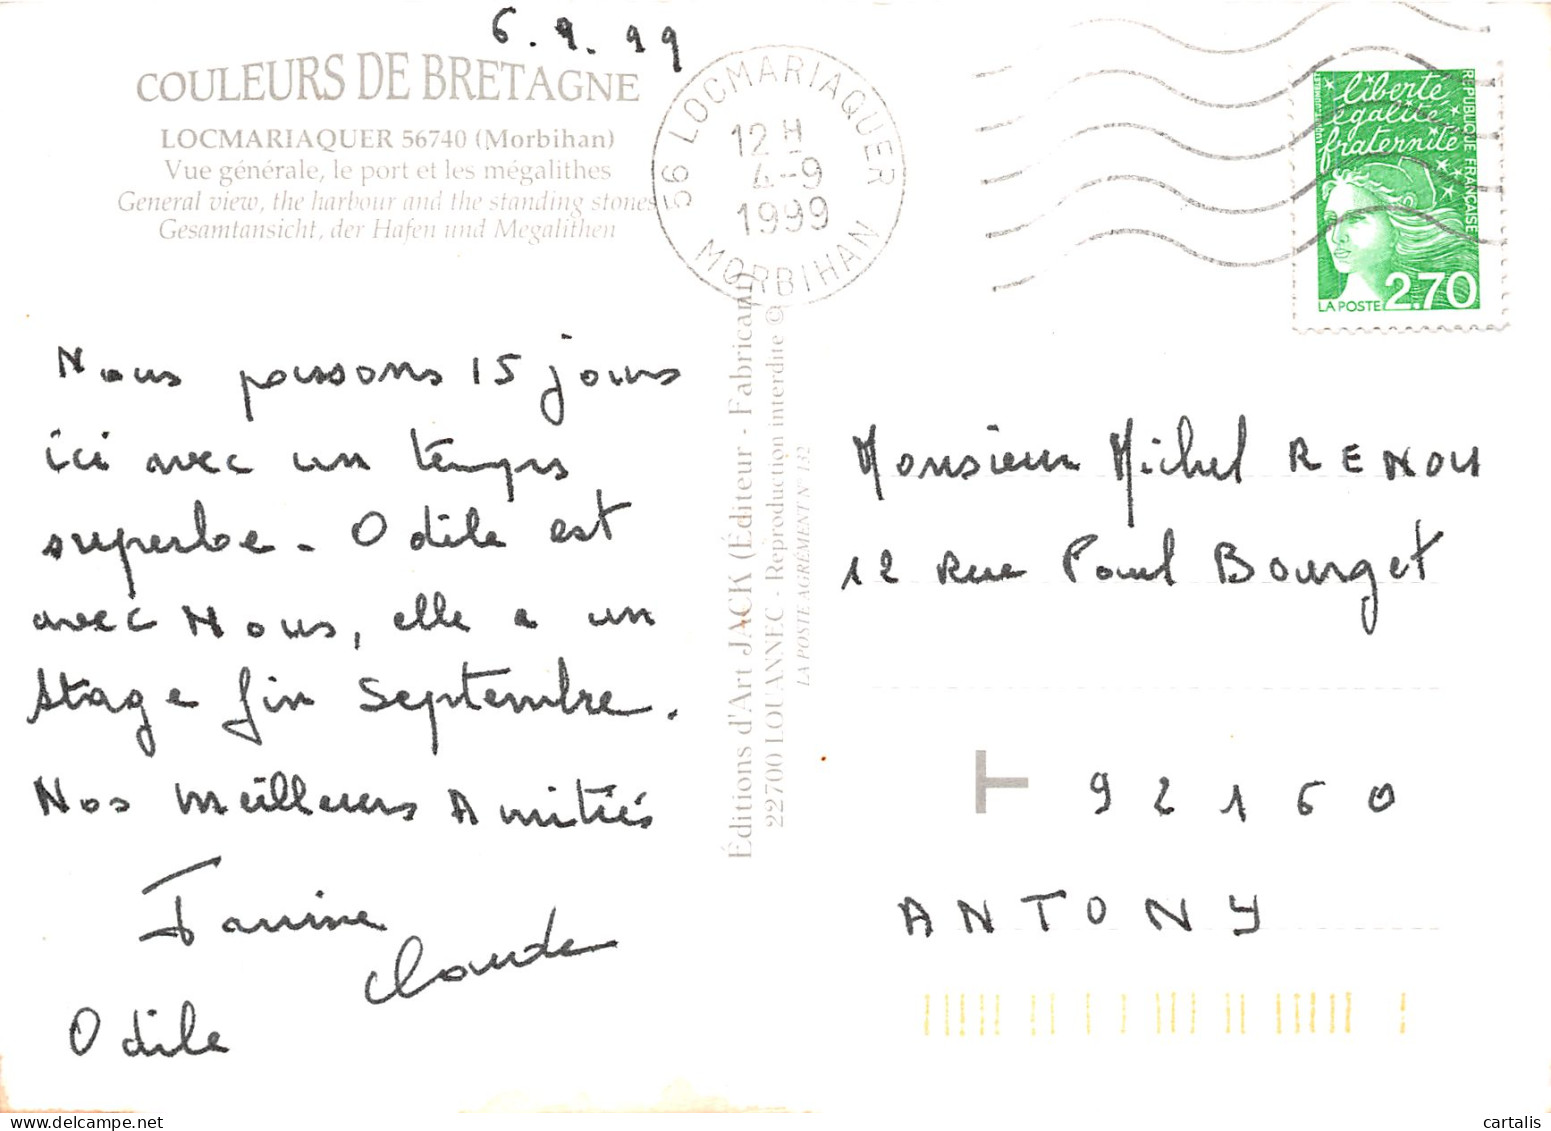 6.9.99
COULEURS DE BRETAGNE
LOCMARIAQUER 56740 (Morbihan)
Vue générale, le port et les mégalithes
General view, the harbour and the standing stones
Gesamtansicht, der Hafen und Megalithen
56 LOCMARIAQUER
12 H
4-9
1999
MORBIHAN
liberté
égalité
fraternité
RÉPUBLIQUE FRANÇAISE
LA POSTE 2,70
Nous passons 15 jours
ici avec un temps
superbe - Odile est
avec Nous, elle a un
stage fin Septembre.
Nos meilleurs Amitiés
Janine
Claude
Odile
Éditions d'Art JACK (Éditeur - Fabricant)
22700 LOUANNEC - Reproduction interdite ©
LA POSTE AGRÉMENT N° 132
Monsieur Michel RENOU
12 Rue Paul Bourget
T 92160
ANTONY
cartalis